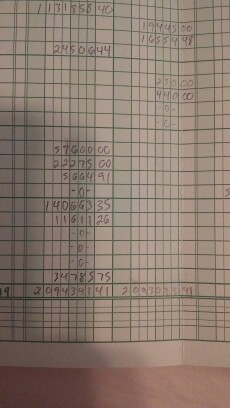 1131858 40
19445 00
16554 98
24506 44
230 00
440 00
-0-
-0-
57600 00
22275 00
5664 91
-0-
140663 35
11611 26
-0-
-0-
-0-
34785 75
19